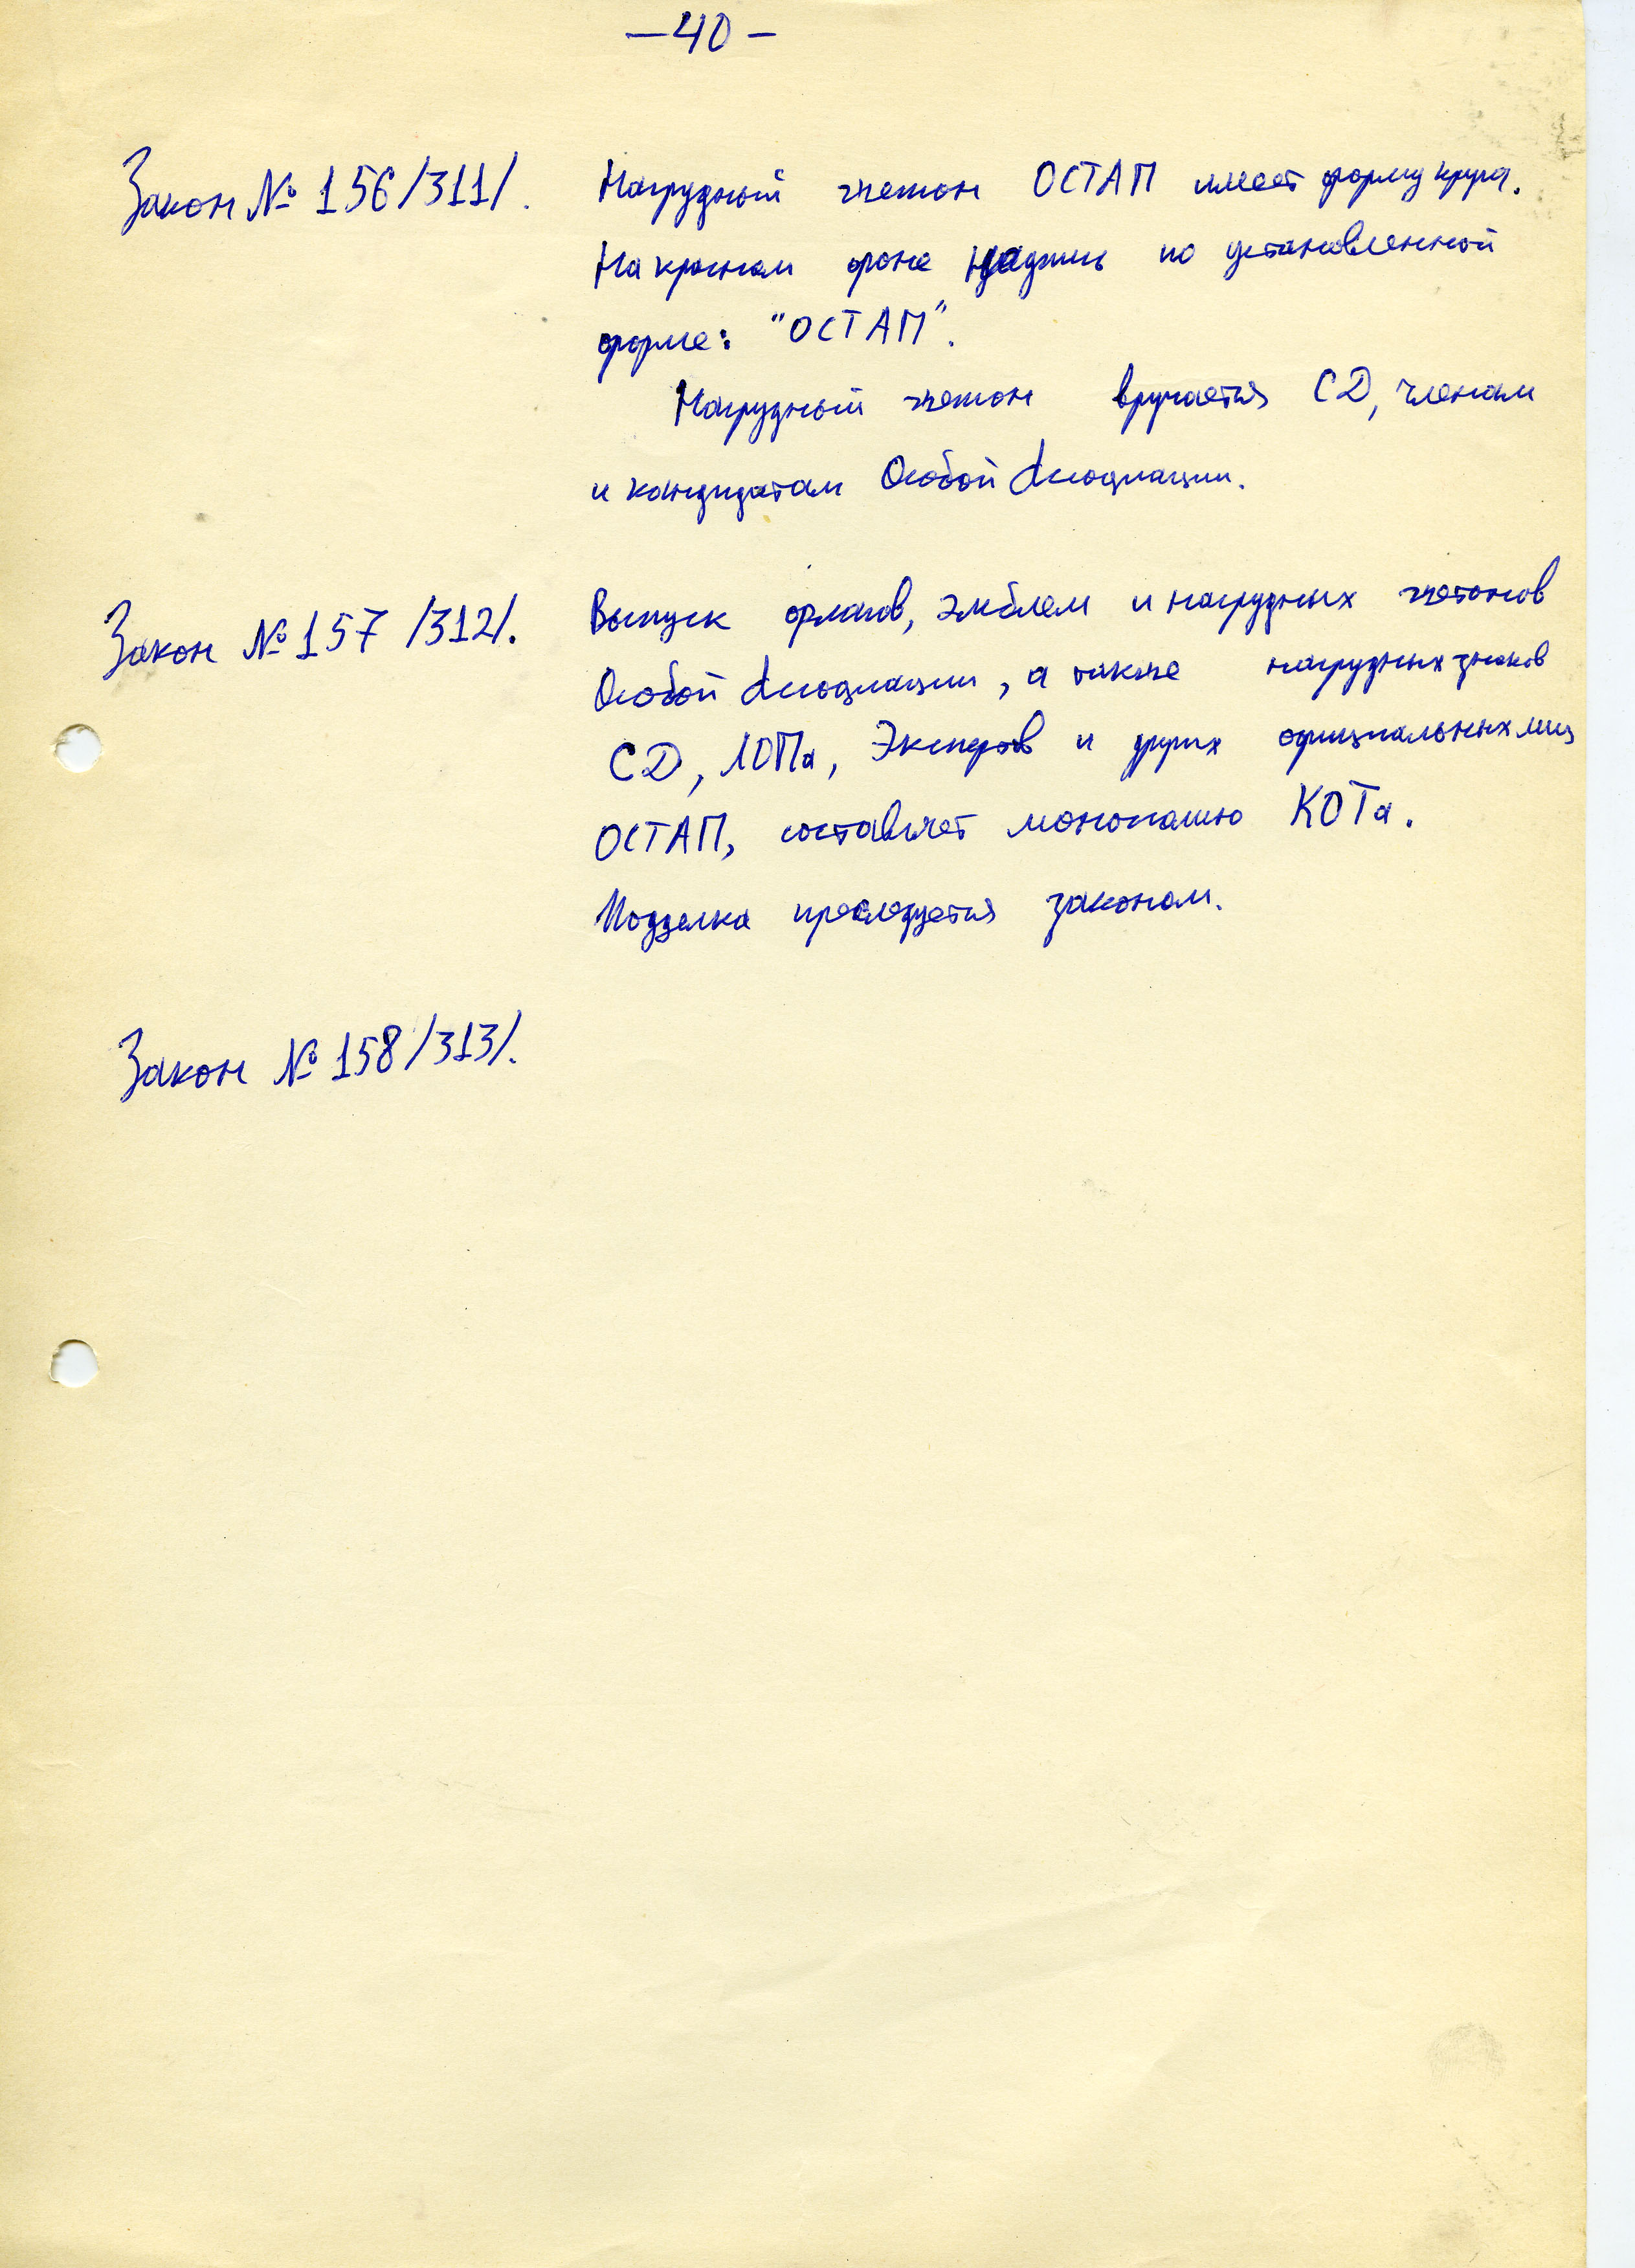 —40—
Закон № 156/311/. Нагрудный жетон ОСТАП имеет форму круга.
На красном фоне надпись по установленной
форме: "ОСТАП".
Нагрудный жетон вручается СД, членам
и кандидатам Особой Ассоциации.
Закон № 157/312/. Выпуск флагов, эмблем и нагрудных жетонов
Особой Ассоциации, а также нагрудных знаков
СД, ЮПа, Экспертов и других официальных лиц
ОСТАП, составляет монополию КОТа.
Подделка преследуется законом.
Закон № 158/313/.